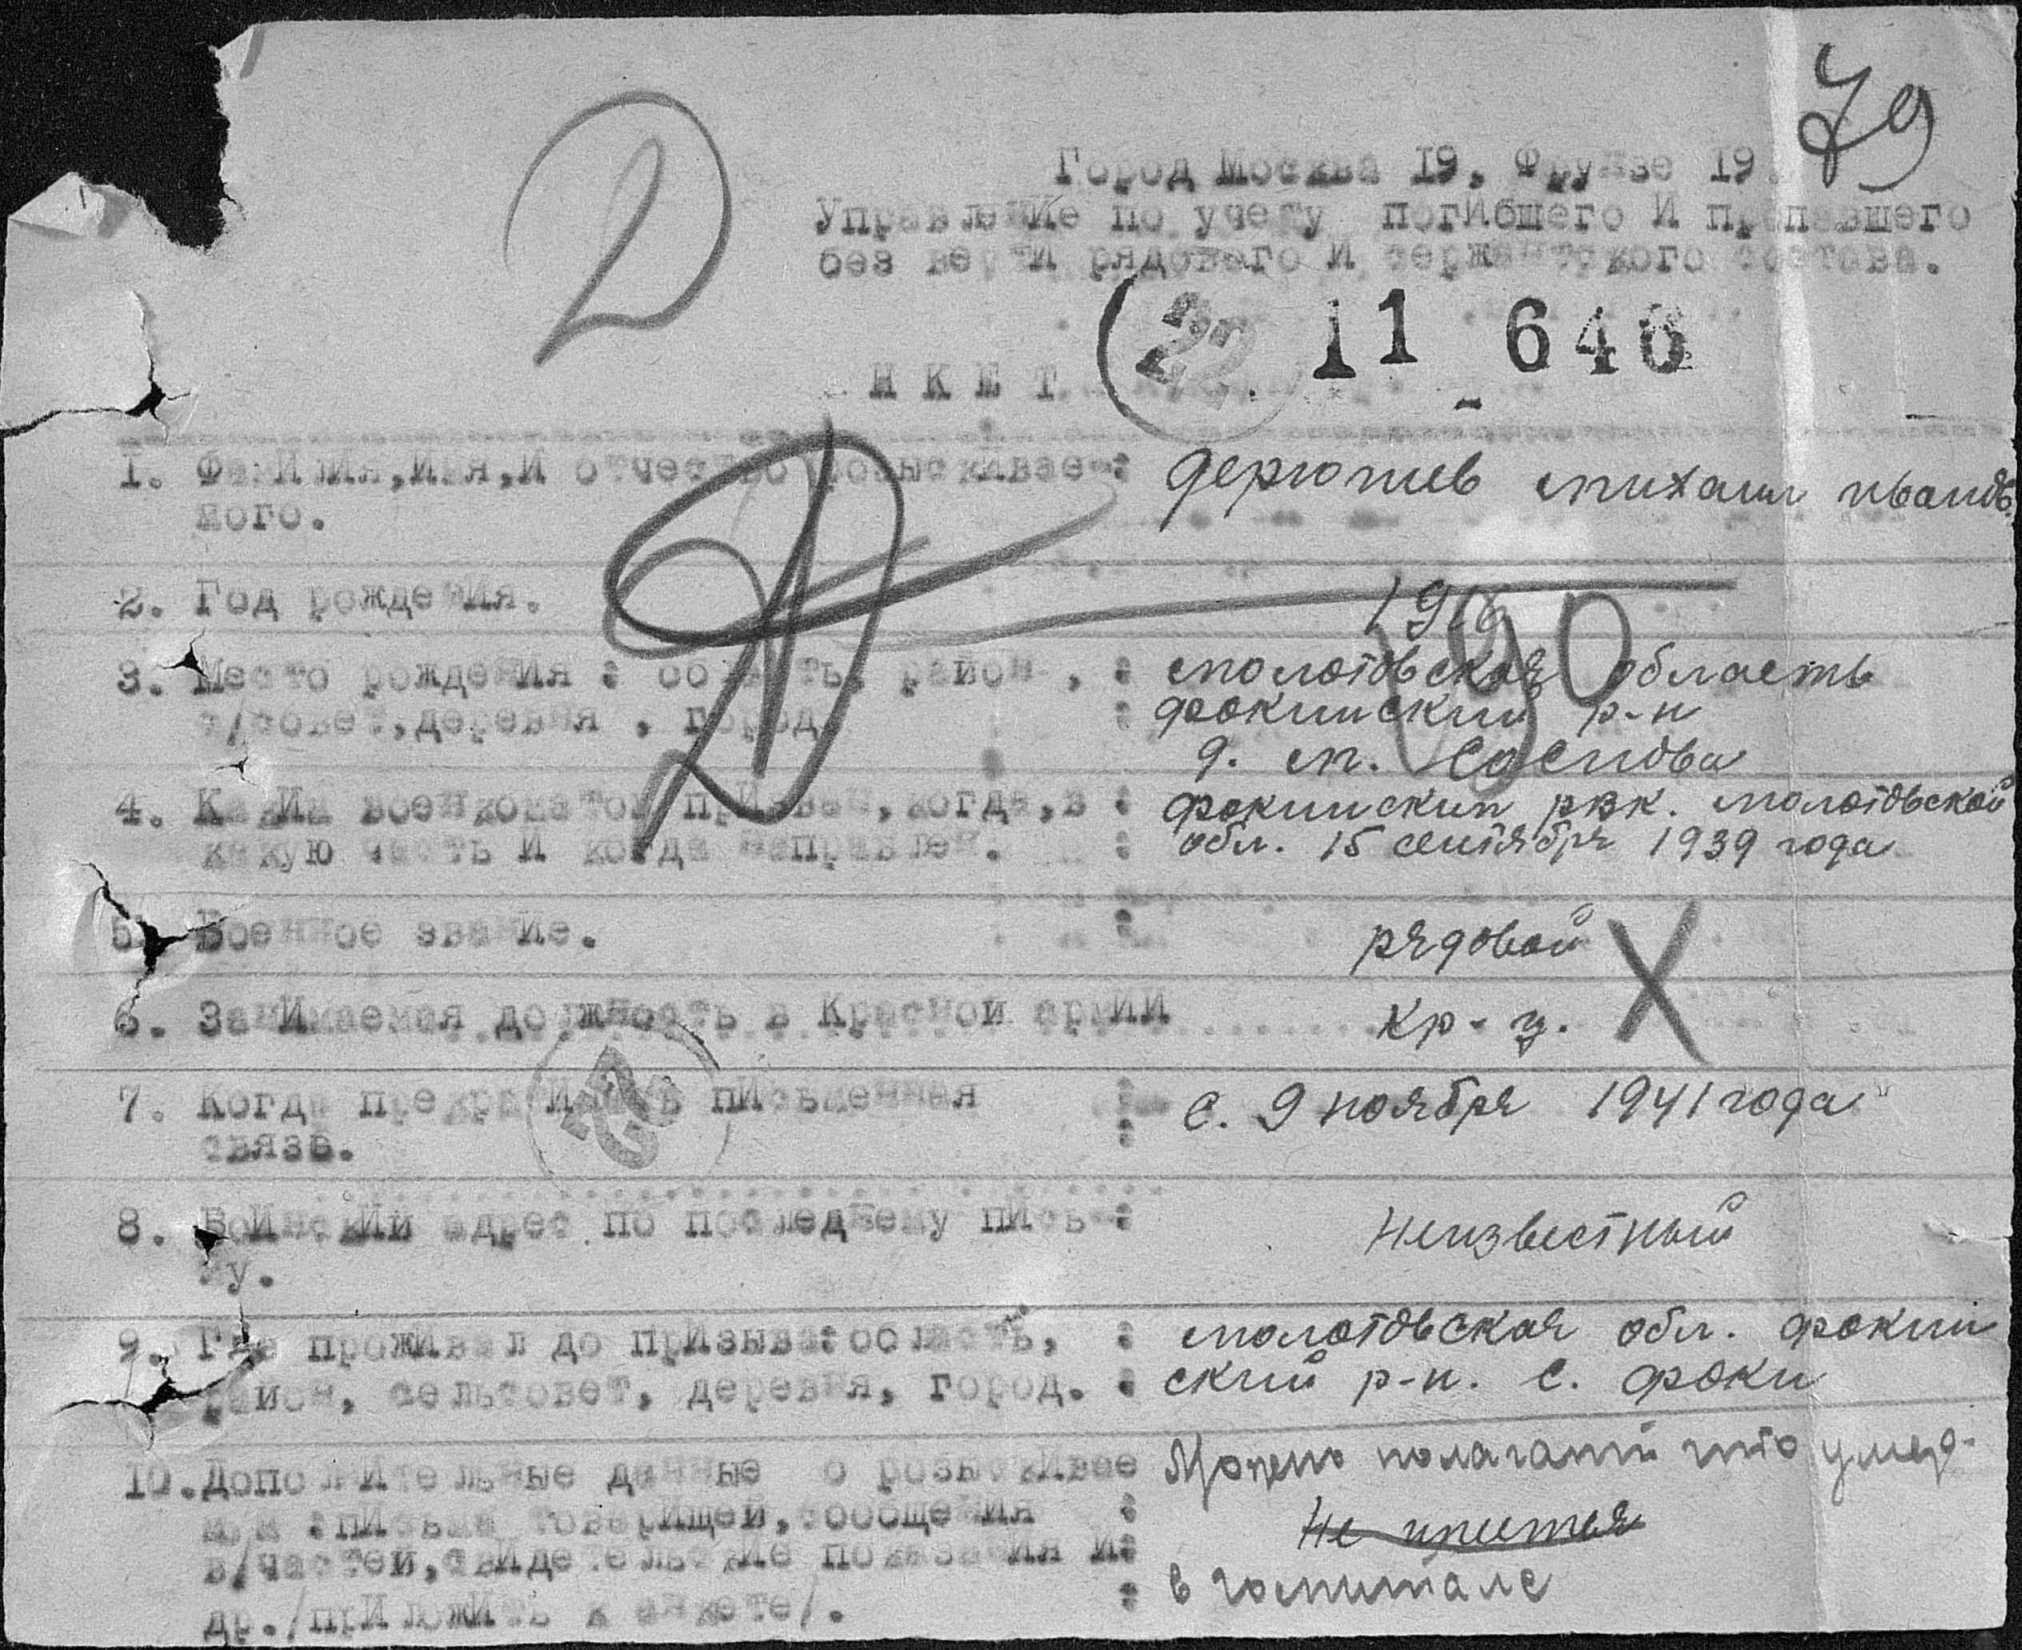 79
Город Москва 19, Фрунзе 19.
Управление по учету погибшего И пропавшего
без вести рядового И сержантского состава.
22 11 646
НКЕТ
1. ФамИлИя,Имя,И отчество розыскивае- : Дерюшев михаил иванов.
мого.
2. Год рождения. 1918
190
3. Место рождения : область, район , : молотовская область
с/совет,деревня , город. : фокинский р-н
д. м. Сосновa
4. КакИм военкоматом прИзван,когда,в : фокинским рвк. молотовской
какую часть И когда направлен. : обл. 15 сентября 1939 года
5. Военное званИе. : рядовой X
6. ЗанИмаемая должность в Красной армИИ кр-ц.
7. Когда прекратИлась пИсьменная : с. 9 ноября 1941 года
связь.
8. ВоИнскИй адрес по последнему пИсь- : Неизвестный
му.
9. Где прожИвал до прИзыва:область, : молотовская обл. фокин
район, сельсовет, деревня, город. : ский р-н. с. фоки
10.ДополнИтельные данные о розыскИвае Можно полагать что умер
мом :пИсьма товарИщей,сообщенИя : Не имется
в/частей,свИдетельскИе показанИя И:
др./прИложИть к анкете/. : в госпитале